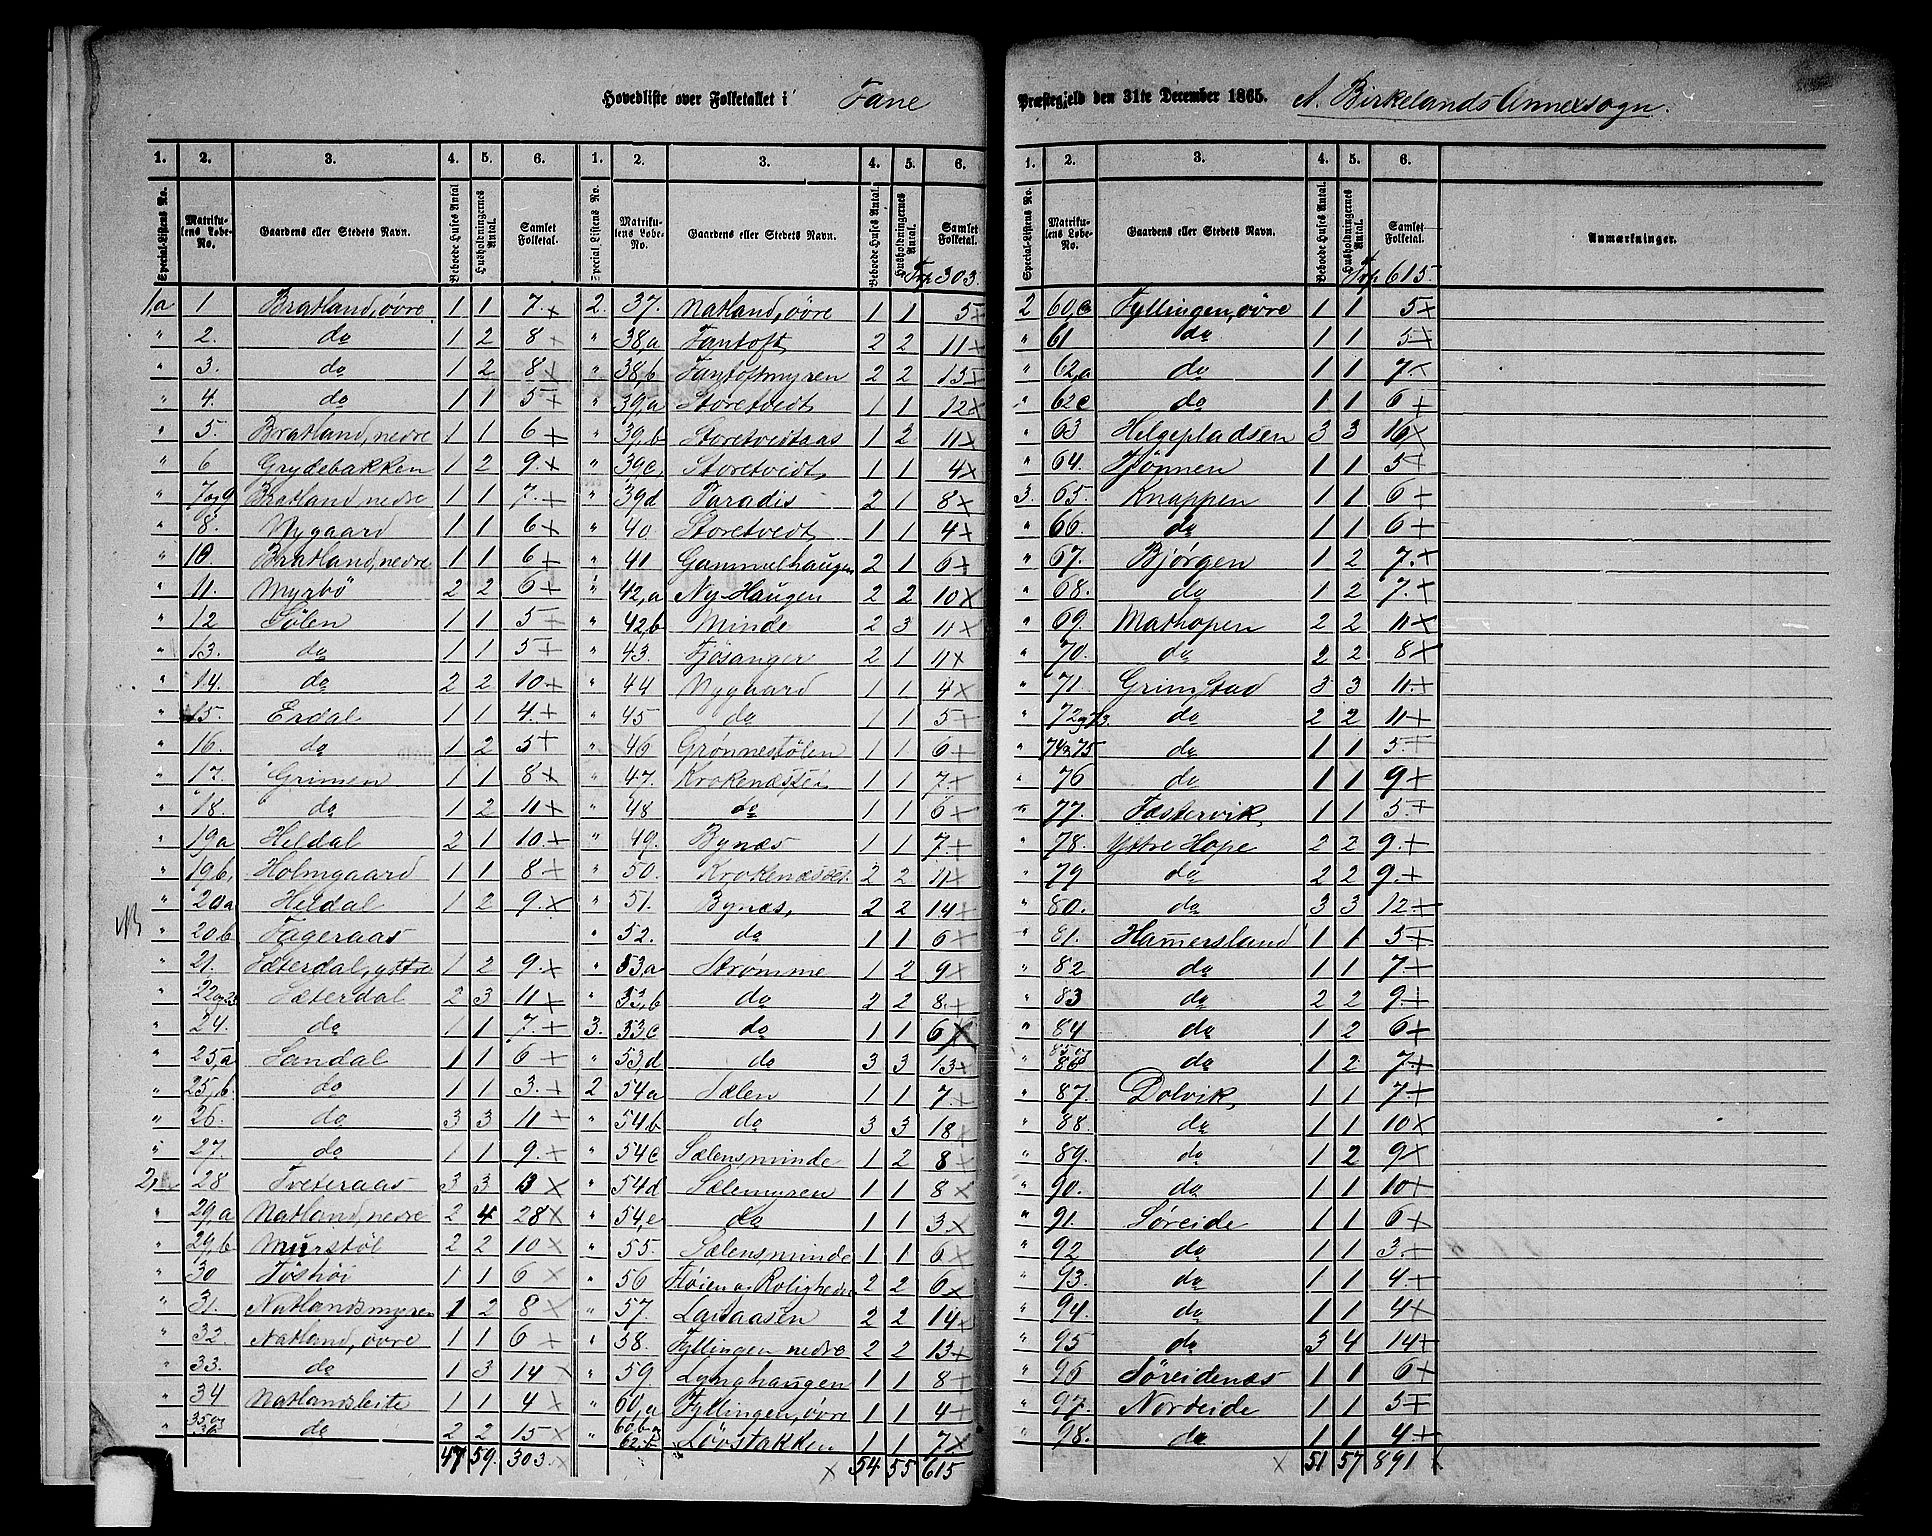 Hovedliste over Folketallet i Fane Præstegjeld den 31te December 1865. A. Birkelands Annexsogn.
1. 2. 3. 4. 5. 6. 1. 2. 3. 4. 5. 6.
Special-Listens No. Matrikulens Løbe-No. Gaardens eller Stedets Navn. Beboede Huses Antal Husholdningernes Antal. Samlet Folketal. Special-Listens No. Matrikulens Løbe-No. Gaardens eller Stedets Navn. Beboede Huses Antal. Husholdningernes Antal. Samlet Folketal.
Trp 303.
1,a 1 Bratland, øvre 1 1 7 x
" 2. do 1 2 8 x
" 3. do 1 2 8 x
" 4. do 1 1 5 +
" 5. Bratland, nedre 1 1 6 +
" 6 Grydebakken 1 2 9. x
" 7og9 Bratland, nedre 1 1 7. +
" 8. Nygaard 1 1 6 x
" 10. Bratland, nedre 1 1 6 +
" 11. Myrbö 2 2 6 +
" 12 Sølen 1 1 5 +
" 13. do 1 1 5 +
" 14. do 2 2 10. +
" 15. Erdal 1 1 4. +
" 16. do 1 2 5 +
" 17. Grimen 1 1 8 x
" 18. do 1 2 11 x
" 19a Heldal 2 1 10. +
" 19,b, Holmgaard 1 1 8 +
" 20a Heldal 1 2 9. x
NB " 20b Fageraas
" 21. Sæterdal, yttre 1 2 9. x
" 22og23 Sæterdal 2 3 11 +
" 24. do 1 1 7. +
" 25,a Sandal 1 1 6 +
" 25,b. do 1 1 3. +
" 26. do 3 3 11 +
" 27. do 1 1 9. x
2, 28 Tveteraas 3 3 13 x
" 29,a Natland, nedre 2 4 28 x
" 29,b Murstöl 2 2 10 x
" 30 1 1 6 x
" 31. Natlandsmyren 1 2 8 x
" 32. Natland, øvre 1 1 6 +
" 33. do 1 3 14 x
" 34 Natlandsleite 1 1 4 x
" 35og36 do 2 2 15 x
47 59. 303.
2. 37. Natland, øvre 1 1 5 x
" 38,a Fantoft, 2 2 11 x
" 38,b Fantoftmyren 2 2 13 x
" 39,a Storetvedt 1 1 12 x
" 39,b Storetvedtaas 1 2 11 x
" 39c, Storetvedt, 1 1 4 x
" 39d Paradis 2 1 8 x
" 40 Storetvedt 1 1 4 +
" 41 Gammelhaugen 2 1 6 +
" 42,a Ny-Haugen 2 2 10 x
" 42,b Minde 2 3 11 x
" 43. Fjösanger 2 1 11 x
" 44 Nygaard 1 1 4 x
" 45 do 1 1 5 +
" 46 Grønnestølen 1 1 6 +
" 47. Krokenæsset 1 1 7. +
" 48 do 1 1 6 +
" 49. Bynæs 1 1 7. +
" 50. Krokenæsset. 2 2 11 x
" 51. Bynæs, 2 2 14 +
" 52. do 1 1 6 +
" 53,a Strømme 1 2 9 x
" 53,b do 2 2 8. +
3. 53,c do 1 1 6 x
" 53,d do 3 3 13 x
2 54a Sælen 1 1 7 +
" 54b do 3 3 18 x
" 54c Sælensminde 1 2 8 x
" 54d Sælemyren 1 1 8 x
" 54,e do 1 1 3 x
" 55. Sælensminde 1 1 6 x
" 56 Fløien og Roligheden 2 2 6 x
" 57. Larsaasen 2 2 14 x
" 58. Fyllingen nedre 2 2 13 +
" 59 Lynghaugen 1 1 8 +
" 60,a Fyllingen, øvre 1 1 4 +
" 60,b og 62,b Løvstakken 1 1 7. x
x 54 55 615
1. 2. 3. 4. 5. 6.
Special-Listens No. Matrikulens Løbe-No. Gaardens eller Stedets Navn. Beboede Huses Antal. Husholdningernes Antal. Samlet Folketal. Anmærkninger.
Trp 615.
2 60,c Fyllingen, øvre 1 1 5 x
" 61 do 1 1 5 x
" 62,a do 1 1 7. x
" 62c do 1 1 6 +
" 63 Helgepladsen 3 3 16 x
" 64. Tjönnen 1 1 5 +
3. 65. Knappen 1 1 6 +
" 66. do 1 1 6 +
" 67. Bjørgen 1 2 7. x
" 68. do 1 2 7. x
" 69. Mathopen 2 2 11 x
" 70. do 2 2 8 x
" 71. Grimstad 3 3 11. +
" 72og73. do 2 2 11 +
" 74og75 do 1 1 5. +
" 76 do 1 1 9 +
" 77. Fæstervik, 1 1 5. +
" 78. Ystre Hope 2 2 9. +
" 79 do 2 2 9. +
" 80. do 3 3 12. +
" 81. Hamersland 1 1 5 +
" 82 do 1 1 7. +
" 83 do 2 2 9. +
" 84 do 1 2 6 +
" 85og86 do 1 2 7. +
" 87. Dolvik, 1 1 7 +
" 88. do 1 1 10 x
" 89. do 1 2 9 x
" 90. do 1 1 10 +
" 91. Søreide 1 1 6 +
" 92 do 1 1 3. +
" 93. do 1 1 4. +
" 94. do 1 1 4 x
" 95 do 3 4 14 +
" 96 Søreidenæs 1 1 6 +
" 97. Nordeide 1 1 5 +
" 98. do 1 1 4. +
x 51 57 891 x